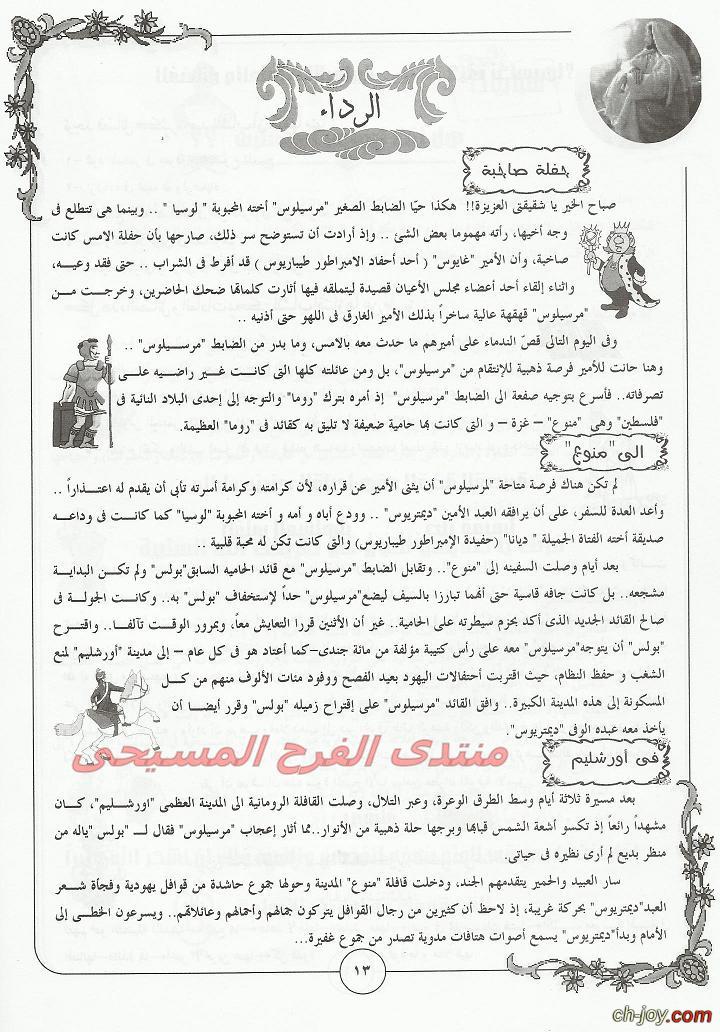 الرداء
حفلة صاخبة
صباح الخير يا شقيقتى العزيزة!! هكذا حيّا الضابط الصغير "مرسيلوس" أخته المحبوبة " لوسيا " .. وبينما هى تتطلع فى
وجه أخيها، رأته مهموما بعض الشئ .. وإذ أرادت أن تستوضح سر ذلك، صارحها بأن حفلة الامس كانت
صاخبة، وأن الأمير "غايوس" ( أحد أحفاد الامبراطور طيباريوس ) قد أفرط فى الشراب .. حتى فقد وعيه،
واثناء إلقاء أحد أعضاء مجلس الأعيان قصيدة ليتملقه فيها أثارت كلماتها ضحك الحاضرين، وخرجت من
"مرسيلوس" قهقهة عالية ساخراً بذلك الأمير الغارق فى اللهو حتى أذنيه ..
وفى اليوم التالى قصّ الندماء على أميرهم ما حدث معه بالامس، وما بدر من الضابط "مرسيلوس" ..
وهنا حانت للأمير فرصة ذهبية للإنتقام من "مرسيلوس"، بل ومن عائلته كلها التى كانت غير راضيه على
تصرفاته.. فأسرع بتوجيه صفعة الى الضابط "مرسيلوس" إذ أمره بترك "روما" والتوجه إلى إحدى البلاد النائية فى
"فلسطين" وهى "منوع" – غزة – و التى كانت بها حامية ضعيفة لا تليق به كقائد فى "روما" العظيمة.
الى "منوع"
لم تكن هناك فرصة متاحة "لمرسيلوس" أن يثنى الأمير عن قراره، لأن كرامته وكرامة أسرته تأبى أن يقدم له اعتذاراً ..
وأعد العدة للسفر، على أن يرافقه العبد الأمين "ديمتريوس" .. وودع أباه و أمه و أخته المحبوبة "لوسيا" كما كانت فى وداعه
صديقة أخته الفتاة الجميلة " ديانا" (حفيدة الإمبراطور طيباريوس) والتى كانت تكن له محبة قلبية ..
بعد أيام وصلت السفينه إلى "منوع".. وتقابل الضابط "مرسيلوس" مع قائد الحاميه السابق"بولس" ولم تكن البداية
مشجعه.. بل كانت جافه قاسية حتى أنهما تبارزا بالسيف ليضع"مرسيلوس" حداً لإستخفاف "بولس" به.. وكانت الجولة فى
صالح القائد الجديد الذى أكد بحزم سيطرته على الحامية.. غير أن الأثنين قررا التعايش معاً، وبمرور الوقت تآلفا.. واقترح
"بولس" أن يتوجه"مرسيلوس" معه على رأس كتيبة مؤلفة من مائة جندى–كما أعتاد هو فى كل عام – إلى مدينة "أورشليم" لمنع
الشغب و حفظ النظام، حيث اقتربت أحتفالات اليهود بعيد الفصح ووفود مئات الألوف منهم من كل
المسكونة إلى هذه المدينة الكبيرة.. وافق القائد "مرسيلوس" على إقتراح زميله "بولس" وقرر أيضا أن
يأخذ معه عبده الوفى "ديمتريوس".
منتدى الفرح المسيحى
فى أورشليم
بعد مسيرة ثلاثة أيام وسط الطرق الوعرة، وعبر التلال، وصلت القافلة الرومانية الى المدينة العظمى "اورشليم"، كان
مشهداً رائعاً إذ تكسو أشعة الشمس قبابها وبرجها حلة ذهبية من الأنوار..مما أثار إعجاب "مرسيلوس" فقال لـ "بولس "ياله من
منظر بديع لم أرى نظيره فى حياتى.
سار العبيد والحمير يتقدمهم الجند، ودخلت قافلة "منوع" المدينة وحولها جموع حاشدة من قوافل يهودية وفجأة شعر
العبد"ديمتريوس" بحركة غريبة، إذ لاحظ أن كثيرين من رجال القوافل يتركون جمالهم وأحمالهم وعائلاتهم.. ويسرعون الخطى إلى
الأمام وبدأ"ديمتريوس" يسمع أصوات هتافات مدوية تصدر من جموع غفيرة...
١٣
ch-joy.com